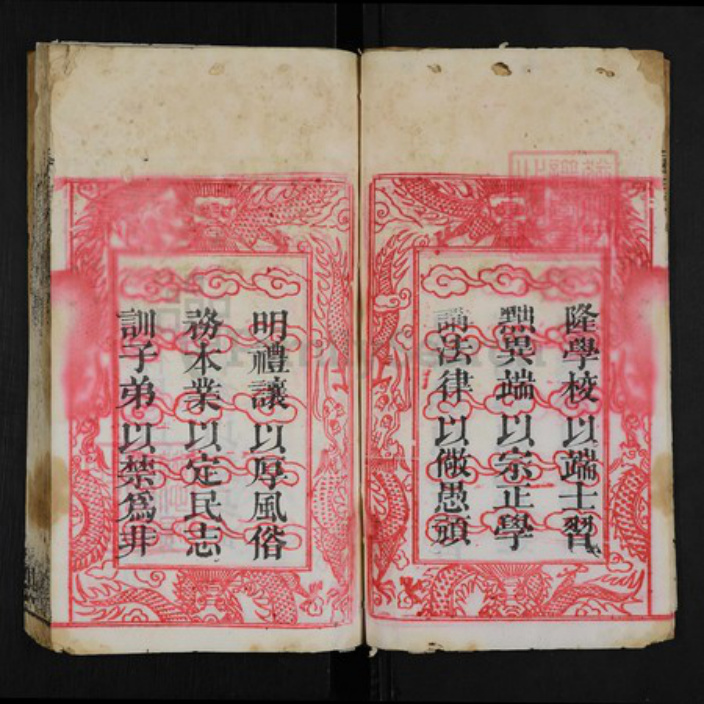 隆學校以端士習
黜異端以宗正學
講法律以儆愚頑
明禮讓以厚風俗
務本業以定民志
訓子弟以禁爲非